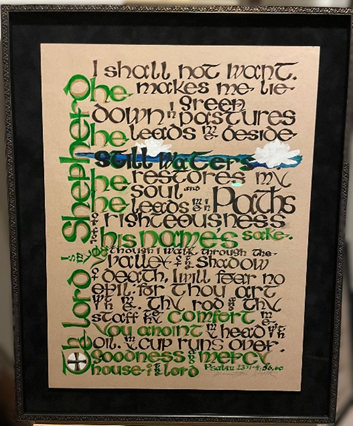 The Lord is my Shepherd
I shall not want.
he makes me lie
down in green pastures
he leads me beside
still waters
he restores my
soul and
he leads me in Paths
of righteousness
for his name's sake.
though I walk through the
valley of the shadow
of death, I will fear no
evil: for thou art
with me thy rod & thy
staff comfort me
You anoint my head with
oil. my cup runs over.
goodness & mercy
house of the lord Psalm 23